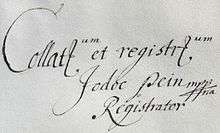 Collatum et registratum
Jodoc Pein mppria
Registrator